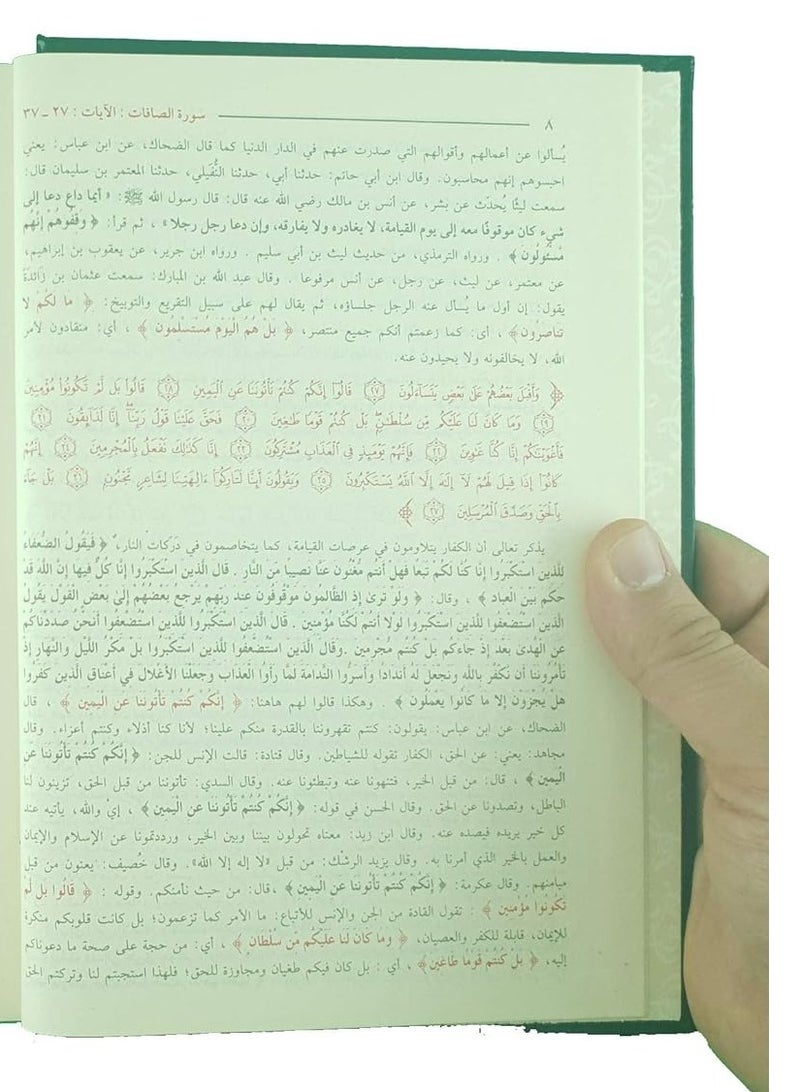 ٨ سورة الصافات : الآيات : ٢٧ ـ ٣٧
يُسألوا عن أعمالهم وأقوالهم التي صدرت عنهم في الدار الدنيا كما قال الضحاك، عن ابن عباس: يعني
احبسوهم إنهم محاسبون. وقال ابن أبي حاتم: حدثنا أبي، حدثنا النُّفَيلي، حدثنا المعتمر بن سليمان قال:
سمعت ليثًا يُحدّث عن بشر، عن أنس بن مالك رضي الله عنه قال: قال رسول الله ﷺ: « أيما داع دعا إلى
شيء كان موقوفًا معه إلى يوم القيامة، لا يغادره ولا يفارقه، وإن دعا رجل رجلا» ، ثم قرأ: ﴿ وَقِفُوهُمْ إِنَّهُم
مَّسْئُولُونَ ﴾ . ورواه الترمذي، من حديث ليث بن أبي سليم . ورواه ابن جرير، عن يعقوب بن إبراهيم،
عن معتمر، عن ليث، عن رجل، عن أنس مرفوعا . وقال عبد الله بن المبارك: سمعت عثمان بن زائدة
يقول: إن أول ما يُسأل عنه الرجل جلساؤه، ثم يقال لهم على سبيل التقريع والتوبيخ: ﴿ ما لكم لا
تناصرون﴾ ، أى: كما زعمتم أنكم جميع منتصر، ﴿ بَلْ هُمُ الْيَوْمَ مُسْتَسْلِمُونَ ﴾ ، أي: منقادون لأمر
الله، لا يخالفونه ولا يحيدون عنه.
﴿ وَأَقْبَلَ بَعْضُهُمْ عَلَىٰ بَعْضٍ يَتَسَآءَلُونَ ﴿٢٧﴾ قَالُوٓا۟ إِنَّكُمْ كُنتُمْ تَأْتُونَنَا عَنِ ٱلْيَمِينِ ﴿٢٨﴾ قَالُوا۟ بَل لَّمْ تَكُونُوا۟ مُؤْمِنِينَ
﴿٢٩﴾ وَمَا كَانَ لَنَا عَلَيْكُم مِّن سُلْطَـٰنٍۭ ۖ بَلْ كُنتُمْ قَوْمًا طَـٰغِينَ ﴿٣٠﴾ فَحَقَّ عَلَيْنَا قَوْلُ رَبِّنَآ ۖ إِنَّا لَذَآئِقُونَ ﴿٣١﴾
فَأَغْوَيْنَـٰكُمْ إِنَّا كُنَّا غَـٰوِينَ ﴿٣٢﴾ فَإِنَّهُمْ يَوْمَئِذٍ فِى ٱلْعَذَابِ مُشْتَرِكُونَ ﴿٣٣﴾ إِنَّا كَذَٰلِكَ نَفْعَلُ بِٱلْمُجْرِمِينَ ﴿٣٤﴾ إِنَّهُمْ
كَانُوٓا۟ إِذَا قِيلَ لَهُمْ لَآ إِلَـٰهَ إِلَّا ٱللَّهُ يَسْتَكْبِرُونَ ﴿٣٥﴾ وَيَقُولُونَ أَئِنَّا لَتَارِكُوٓا۟ ءَالِهَتِنَا لِشَاعِرٍ مَّجْنُونٍۭ ﴿٣٦﴾ بَلْ جَآءَ
بِٱلْحَقِّ وَصَدَّقَ ٱلْمُرْسَلِينَ ﴿٣٧﴾ ﴾
يذكر تعالى أن الكفار يتلاومون في عرصات القيامة، كما يتخاصمون في دَرَكات النار، ﴿ فَيَقُولُ الضُّعَفَاءُ
لِلَّذِينَ اسْتَكْبَرُوا إِنَّا كُنَّا لَكُمْ تَبَعًا فَهَلْ أَنتُم مُّغْنُونَ عَنَّا نَصِيبًا مِّنَ النَّارِ . قَالَ الَّذِينَ اسْتَكْبَرُوا إِنَّا كُلٌّ فِيهَا إِنَّ اللَّهَ قَدْ
حَكَمَ بَيْنَ الْعِبَادِ ﴾ ، وقال: ﴿ وَلَوْ تَرَىٰ إِذِ الظَّالِمُونَ مَوْقُوفُونَ عِندَ رَبِّهِمْ يَرْجِعُ بَعْضُهُمْ إِلَىٰ بَعْضٍ الْقَوْلَ يَقُولُ
الَّذِينَ اسْتُضْعِفُوا لِلَّذِينَ اسْتَكْبَرُوا لَوْلا أَنتُمْ لَكُنَّا مُؤْمِنِينَ . قَالَ الَّذِينَ اسْتَكْبَرُوا لِلَّذِينَ اسْتُضْعِفُوا أَنَحْنُ صَدَدْنَاكُمْ
عَنِ الْهُدَىٰ بَعْدَ إِذْ جَاءَكُم بَلْ كُنتُم مُّجْرِمِينَ .وَقَالَ الَّذِينَ اسْتُضْعِفُوا لِلَّذِينَ اسْتَكْبَرُوا بَلْ مَكْرُ اللَّيْلِ وَالنَّهَارِ إِذْ
تَأْمُرُونَنَا أَن نَّكْفُرَ بِاللَّهِ وَنَجْعَلَ لَهُ أَندَادًا وَأَسَرُّوا النَّدَامَةَ لَمَّا رَأَوُا الْعَذَابَ وَجَعَلْنَا الأَغْلالَ فِي أَعْنَاقِ الَّذِينَ كَفَرُوا
هَلْ يُجْزَوْنَ إِلا مَا كَانُوا يَعْمَلُونَ ﴾ . وهكذا قالوا لهم هاهنا: ﴿ إِنَّكُمْ كُنتُمْ تَأْتُونَنَا عَنِ الْيَمِينِ ﴾ ، قال
الضحاك، عن ابن عباس: يقولون: كنتم تقهروننا بالقدرة منكم علينا؛ لأنا كنا أذلاء وكنتم أعزاء. وقال
مجاهد: يعني: عن الحق، الكفار تقوله للشياطين. وقال قتادة: قالت الإنس للجن: ﴿ إِنَّكُمْ كُنتُمْ تَأْتُونَنَا عَنِ
الْيَمِينِ ﴾ ، قال: من قبل الخير، فتنهونا عنه وتبطئونا عنه. وقال السدي: تأتوننا من قبل الحق، تزينون لنا
الباطل، وتصدونا عن الحق. وقال الحسن في قوله: ﴿ إِنَّكُمْ كُنتُمْ تَأْتُونَنَا عَنِ الْيَمِينِ ﴾ ، إيْ والله، يأتيه عند
كل خير يريده فيصده عنه. وقال ابن زيد: معناه تحولون بيننا وبين الخير، ورددتمونا عن الإسلام والإيمان
والعمل بالخير الذي أمرنا به. وقال يزيد الرشك: من قبل «لا إله إلا الله». وقال خُصيف: يعنون من قبل
ميامنهم. وقال عكرمة: ﴿ إِنَّكُمْ كُنتُمْ تَأْتُونَنَا عَنِ الْيَمِينِ ﴾ ،قال: من حيث نأمنكم. وقوله : ﴿ قَالُوا بَل لَّمْ
تَكُونُوا مُؤْمِنِينَ ﴾ : تقول القادة من الجن والإنس للأتباع: ما الأمر كما تزعمون؛ بل كانت قلوبكم منكرة
للإيمان، قابلة للكفر والعصيان، ﴿ وَمَا كَانَ لَنَا عَلَيْكُم مِّن سُلْطَانٍ ﴾ ، أي: من حجة على صحة ما دعوناكم
إليه، ﴿ بَلْ كُنتُمْ قَوْمًا طَاغِينَ﴾ ، أي : بل كان فيكم طغيان ومجاوزة للحق؛ فلهذا استجبتم لنا وتركتم الحق